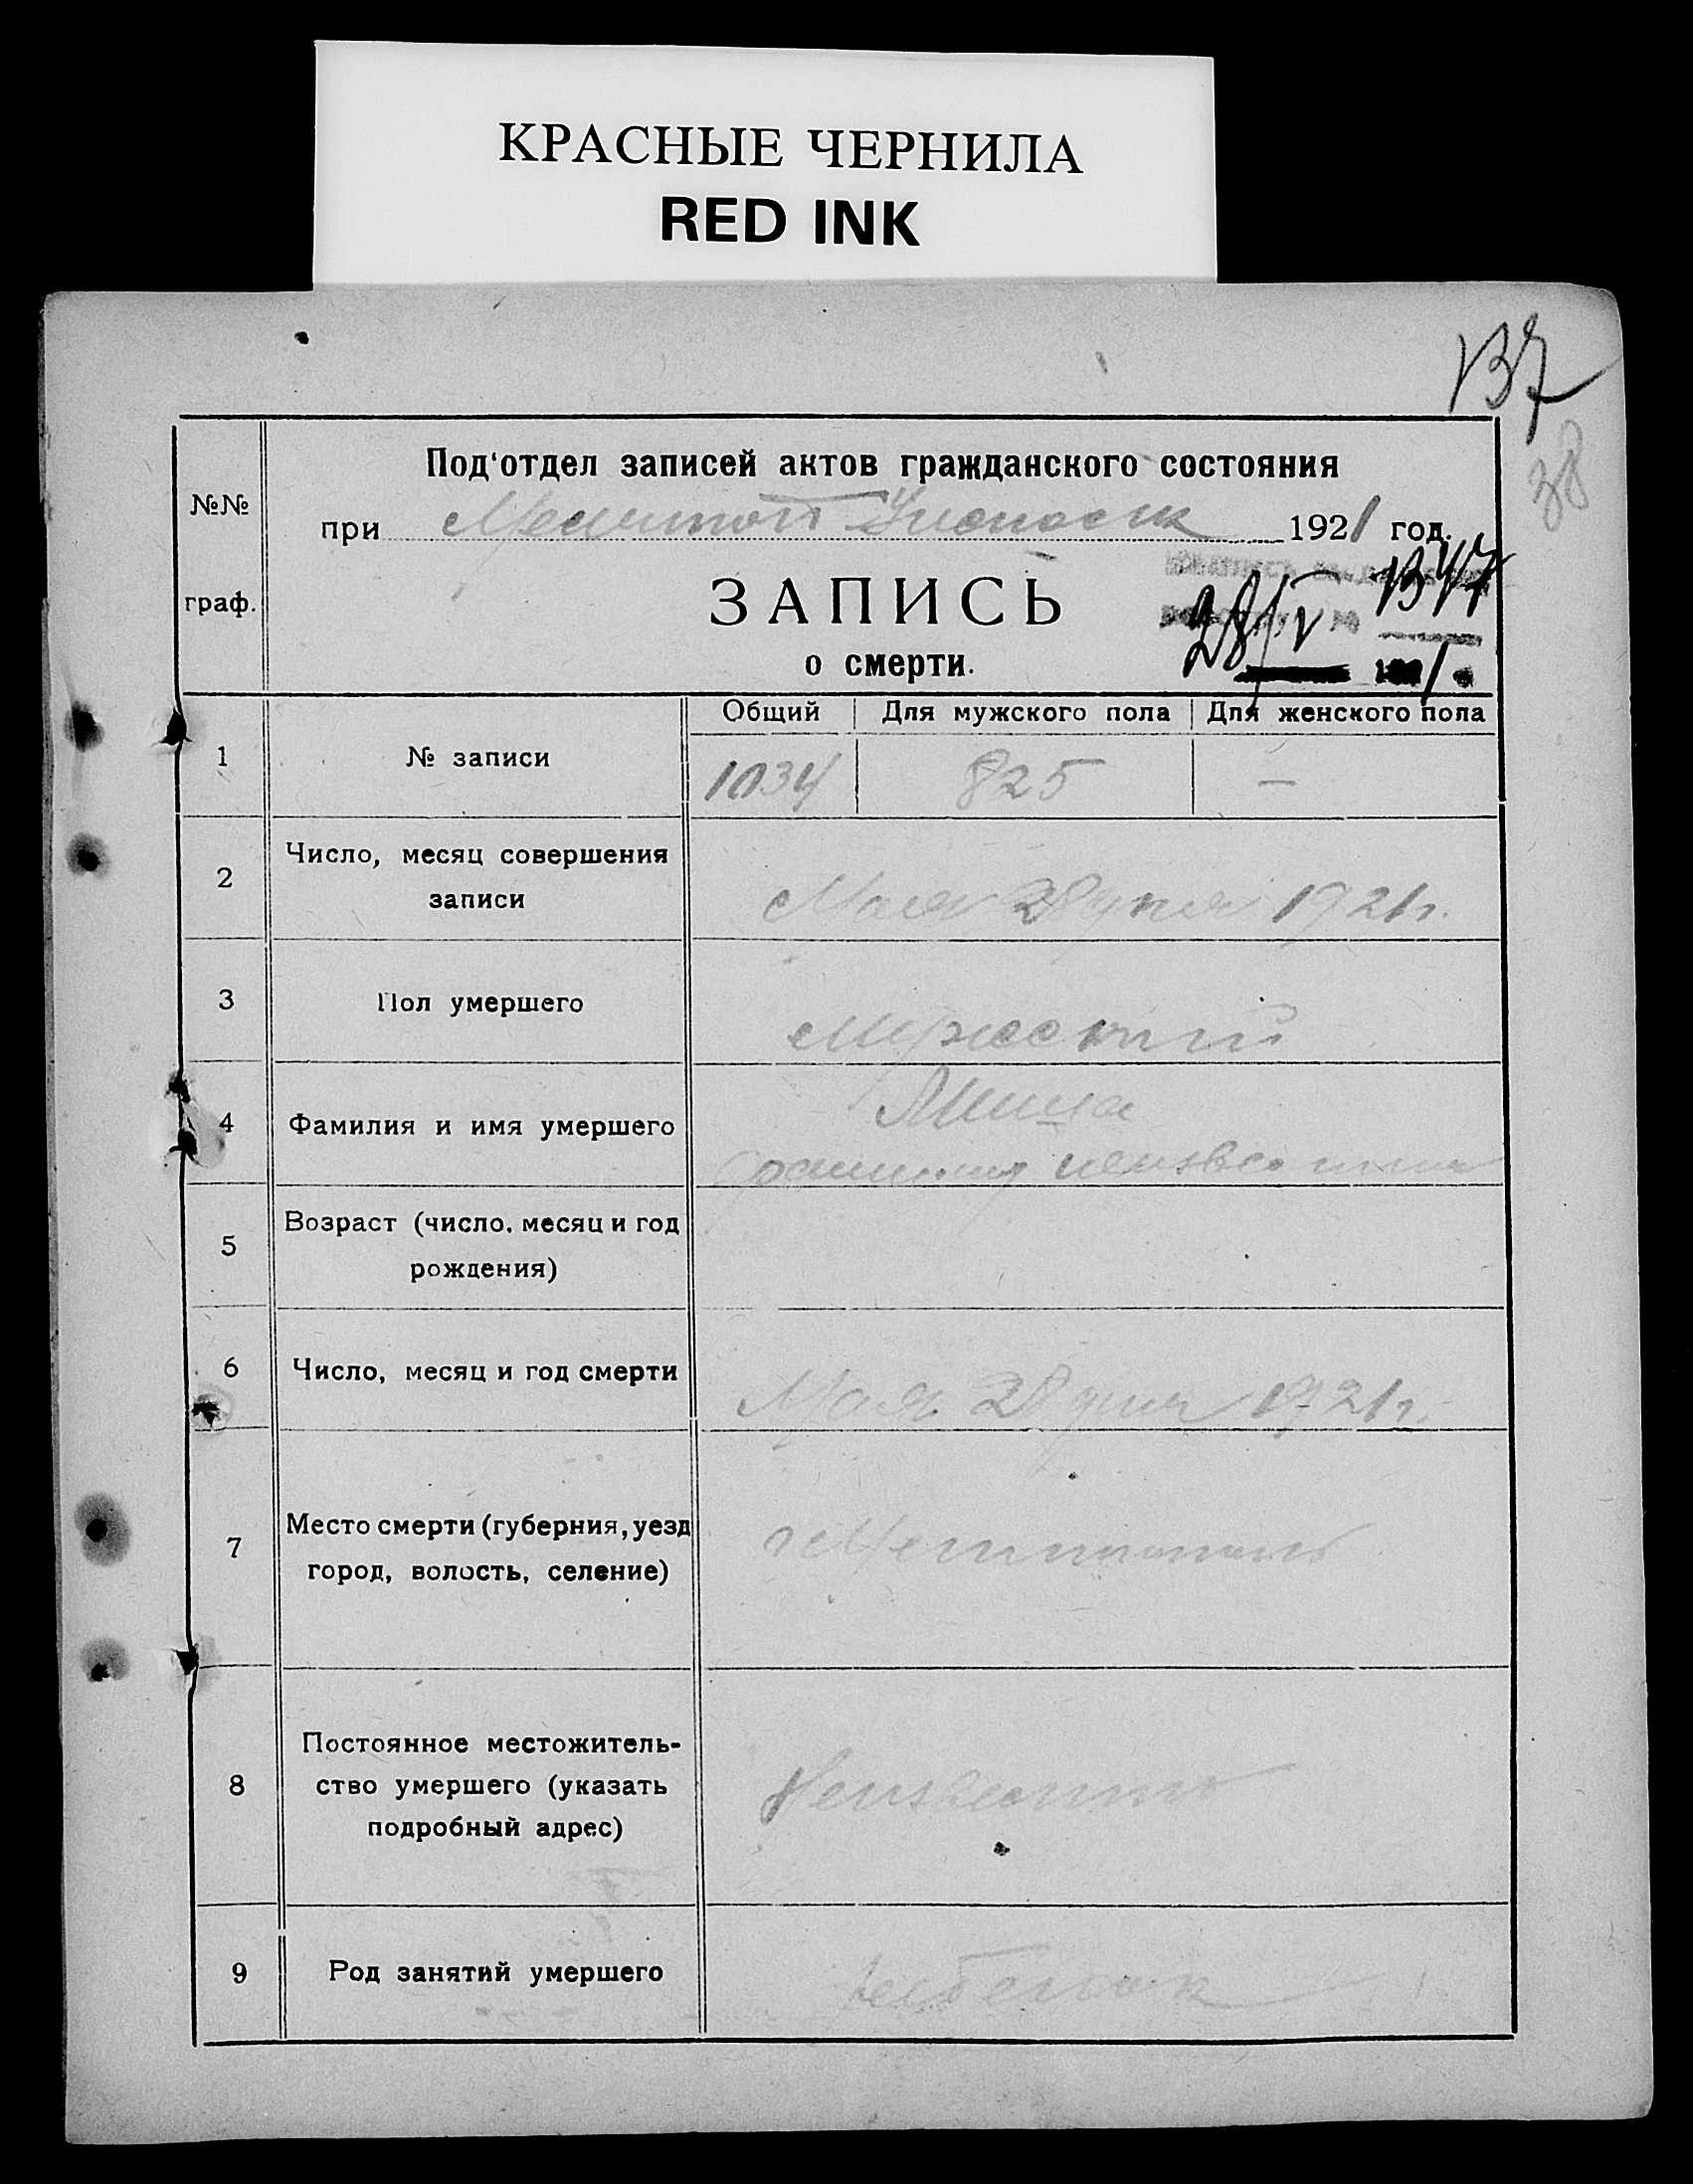 КРАСНЫЕ ЧЕРНИЛА
RED INK
137
38
Под'отдел записей актов гражданского состояния
№№
при 1921 год.
граф.
ЗАПИСЬ
о смерти.
28/V
Общий Для мужского пола Для женского пола
1 № записи 1034 825 —
2 Число, месяц совершения
записи Мая 28 дня 1921 г.
3 Пол умершего мужеский
4 Фамилия и имя умершего Миша
фамилия неизвестна
5 Возраст (число, месяц и год
рождения)
6 Число, месяц и год смерти Мая 28 дня 1921 г.
7 Место смерти (губерния, уезд
город, волость, селение)
8 Постоянное местожитель-
ство умершего (указать
подробный адрес) Неизвестно
9 Род занятий умершего ребенок